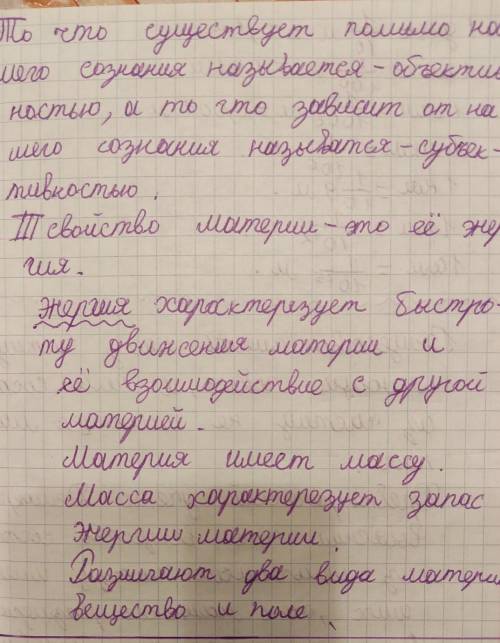 То что существует помимо на
шего сознания называется - объектив
ностью, а то что зависит от на
шего сознания назыбатся - субъек-
тивностью.
III свойство материи - это её энер
гия.
Энергия характерезует быстро-
ту движения материи и
её взаимодействие с другой
материей.
Материя имеет массу.
Масса характерезует запас
энергии материи.
Различают два вида матери
вещество и поле.